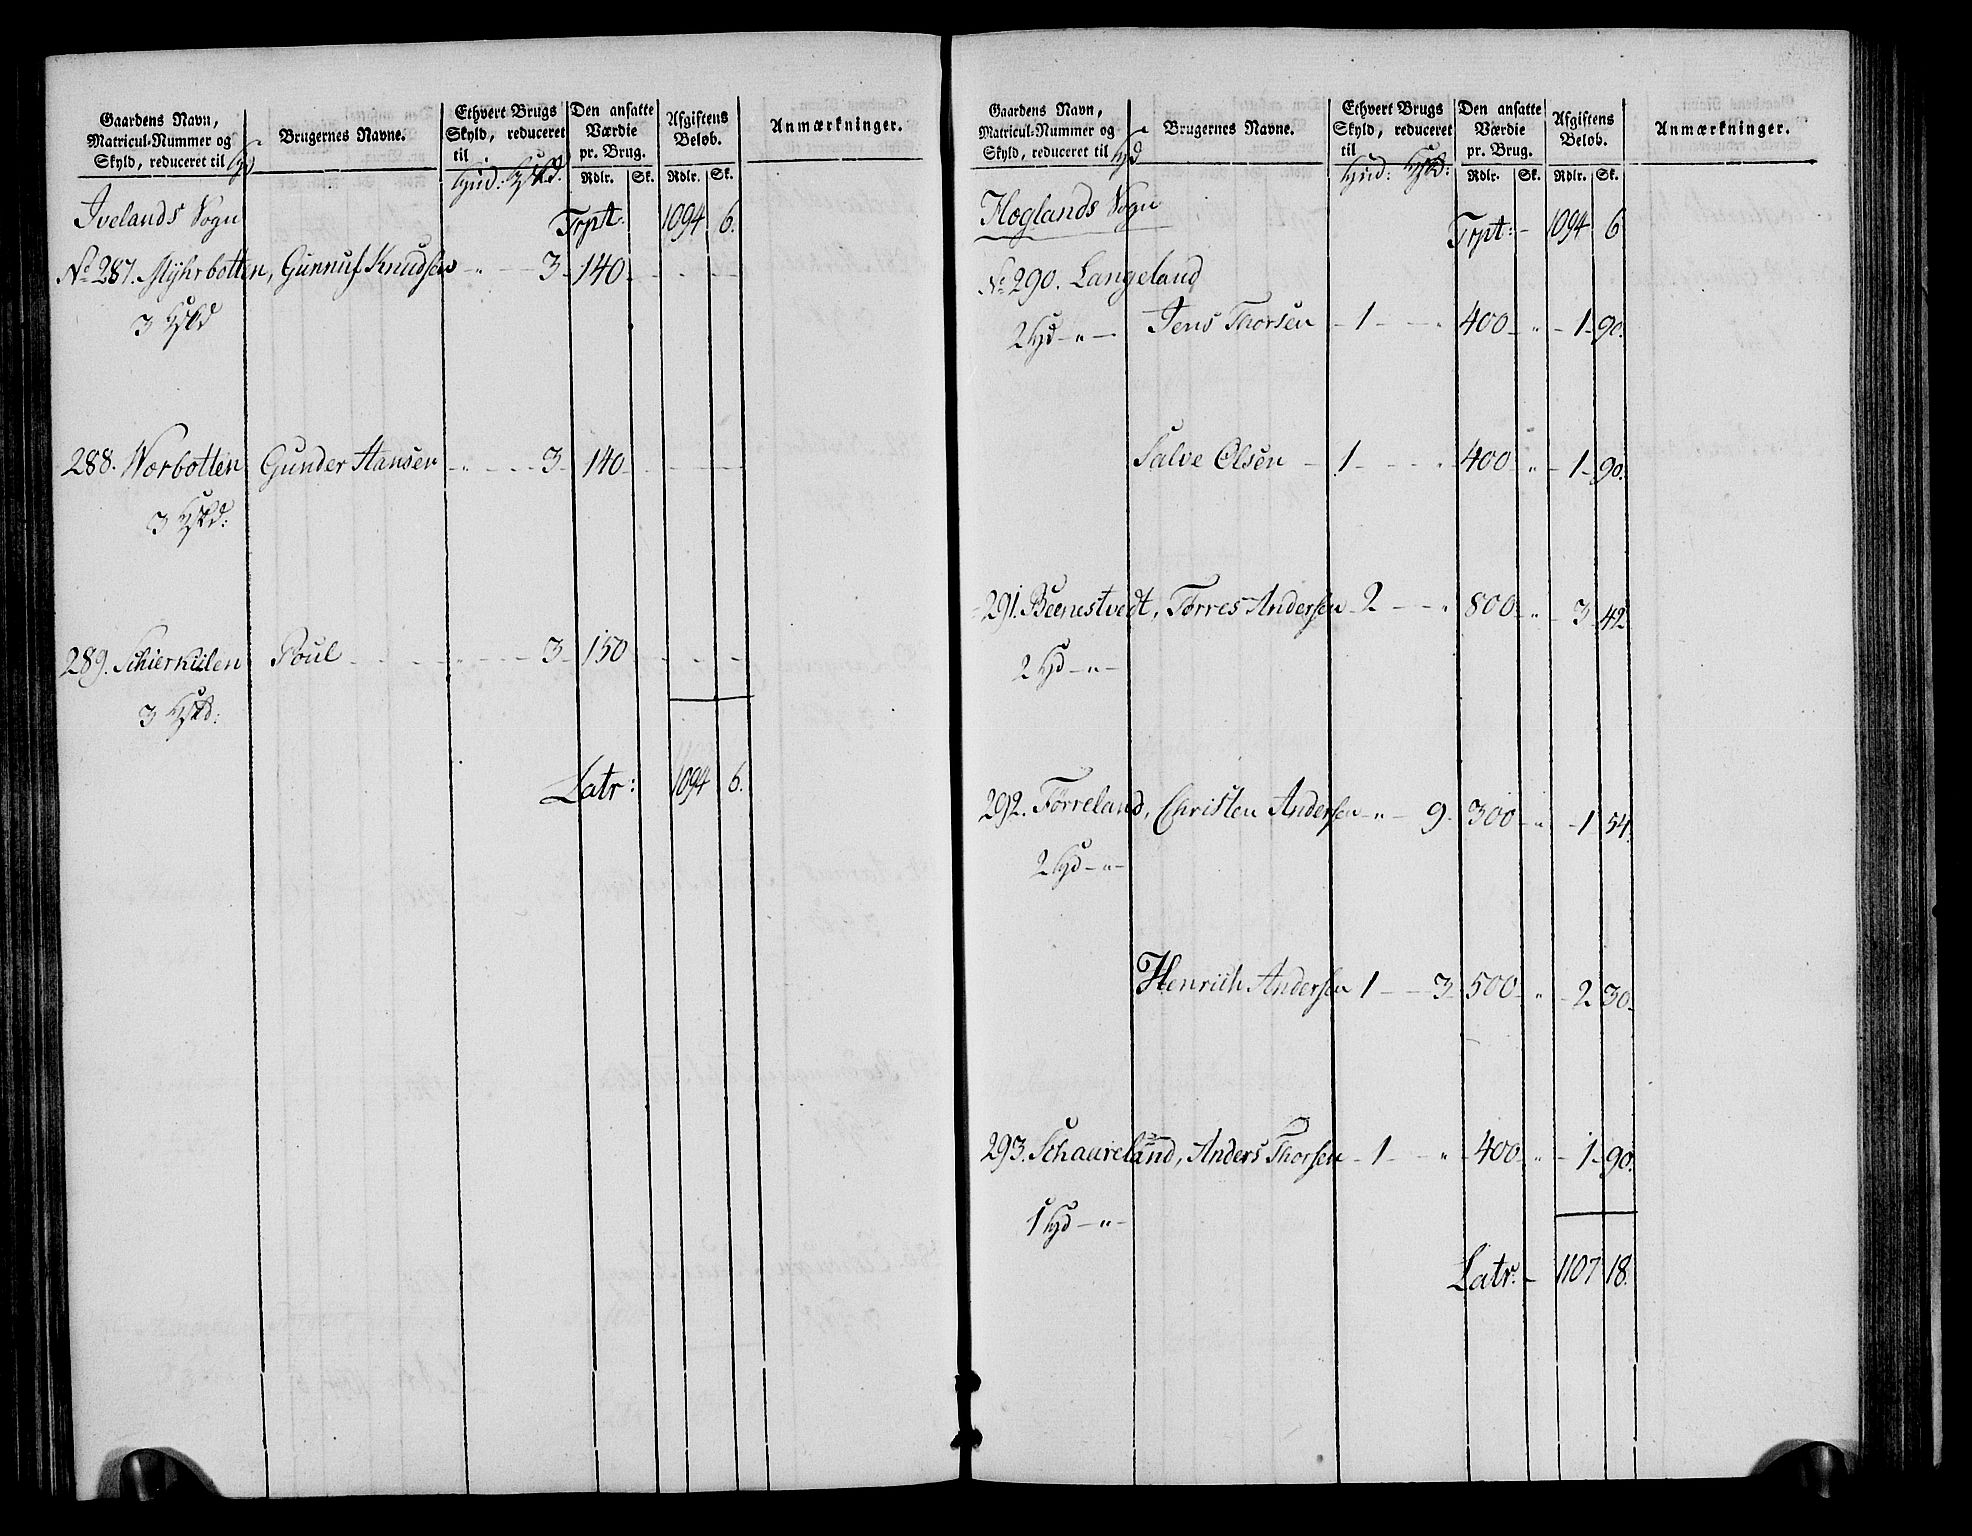 Gaardens Navn, Matricul-Nummer og Skyld, reduceret til Hd
Brugernes Navne.
Ethvert Brugs Skyld, reduceret til Hud: Hskd:
Den ansatte Værdie pr. Brug. Rdlr. Sk.
Afgiftens Beløb. Rdlr. Sk.
Anmærkninger.
Ivelands Sogn Trpt: 1094 6.
No 287. Myhrbotten, Gunnuf Knudsen - „ - 3 - 140 - - -
3 Hskd
288. Worbotten Gunder Hansen - „ - - 3 - 140 - - -
3 Hskd:
289. Schierkiilen Poul - - - „ - - - 3 - 150 - - -
3 Hskd:
Latr: 1094 6.
Gaardens Navn, Matricul-Nummer og Skyld, reduceret til Hd
Brugernes Navne.
Ethvert Brugs Skyld, reduceret til Hud: Hskd:
Den ansatte Værdie pr. Brug. Rdlr. Sk.
Afgiftens Beløb. Rdlr. Sk.
Anmærkninger.
Høglands Sogn Trpt: - 1094 6
No 290. Langeland
2 Hd - „ - Jens Thorsen - 1 - - „ 400 - „ - 1 - 90.
Salve Olsen - 1 - - „ 400 - „ - 1 - 90.
291. Beenestvedt, Torres Andersen - 2 - - „ 800 - „ - 3 - 42
2 Hd - „ -
292. Førreland, Christen Andersen - „ - 9. 300 - „ - 1 54.
2 Hd - „ -
Henrich Andersen 1 - - 3 - 500 - „ - 2 30.
293. Schaureland, Anders Thorsen - 1 - - „ - 400 - „ - 1 - 90.
1 Hd - „ -
Latr: - 1107 18.